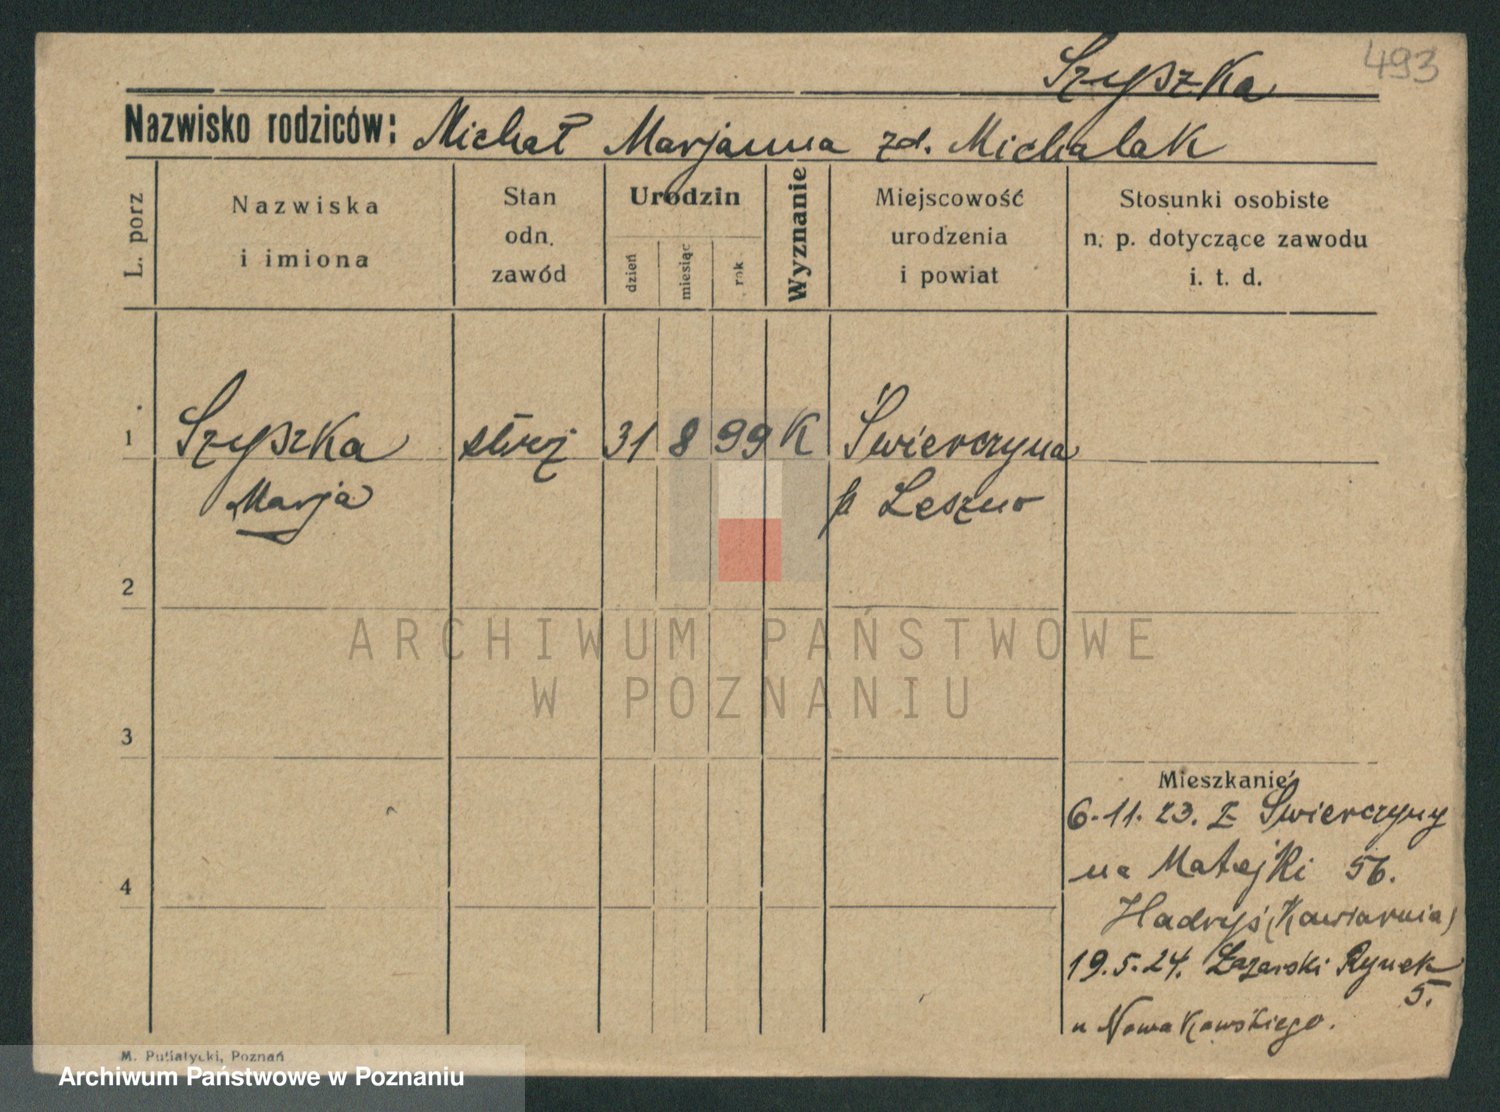 Szyszka 493
Nazwisko rodziców: Michał Marjanna zd. Michalak
L. porz
Nazwiska
i imiona
Stan
odn.
zawód
Urodzin
dzień
miesiąc
rok
Wyznanie
Miejscowość
urodzenia
i powiat
Stosunki osobiste
n. p. dotyczące zawodu
i. t. d.
1 Szyszka 31 8 99 K Świerczyna
Marja p Leszno
2
3
4
ARCHIWUM PAŃSTWOWE
W POZNANIU
Mieszkanie
6.11.23. z Świerczyny
na Matejki 56.
Hadryś (Kawiarnia)
19.5.24. Łazarski Rynek
5.
u Nowakowskiego.
M. Putiatycki, Poznań
Archiwum Państwowe w Poznaniu